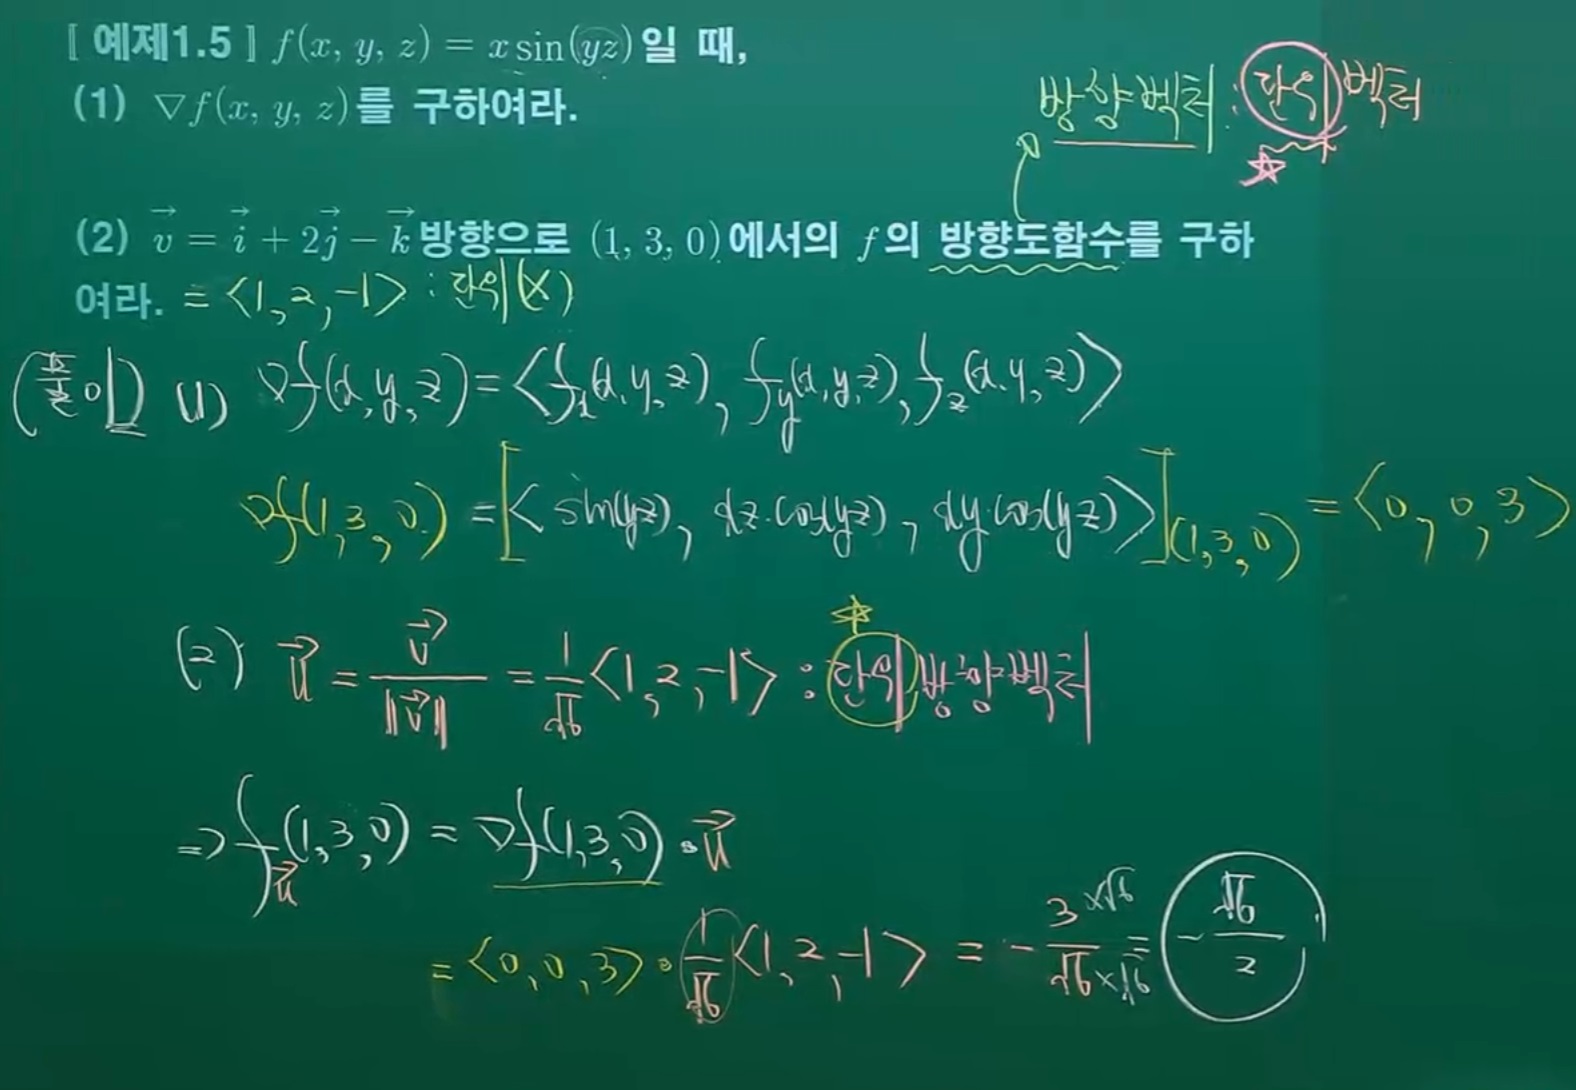 [ 예제1.5 ] f(x, y, z) = x sin(yz) 일 때,
(1) ∇f(x, y, z)를 구하여라.
방향벡터 : 단위벡터
☆
(2) v⃗ = i⃗ + 2j⃗ − k⃗ 방향으로 (1, 3, 0)에서의 f의 방향도함수를 구하
여라. = <1, 2, -1> : 단위(X)
(풀이) (1) ∇f(x, y, z) = <f_x(x, y, z), f_y(x, y, z), f_z(x, y, z)>
∇f(1, 3, 0) = [<sin(yz), xz·cos(yz), xy·cos(yz)>](1, 3, 0) = <0, 0, 3>
☆
(2) u⃗ = v⃗/‖v⃗‖ = 1/√6 <1, 2, -1> : 단위방향벡터
⇒ f_u⃗(1, 3, 0) = ∇f(1, 3, 0) · u⃗
= <0, 0, 3> · 1/√6 <1, 2, -1> = - 3×√6/√6×√6 = - √6/2